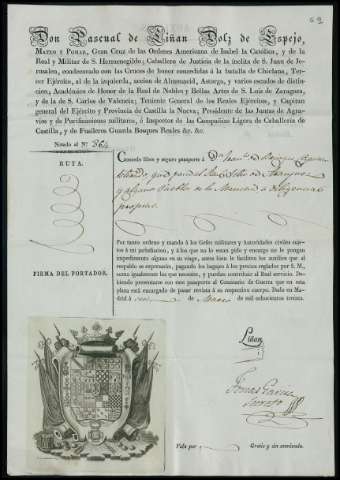 69
Don Pascual de Liñan Dolz de Espejo,
Mateo y Pomar, Gran Cruz de las Ordenes Americana de Isabel la Católica, y de la
Real y Militar de S. Hermenegildo; Caballero de Justicia de la ínclita de S. Juan de Jerusalen, condecorado con las Cruces de honor concedidas á la batalla de Chiclana, Tercer Ejército, al de la izquierda, accion de Almonacid, Astorga, y varios escudos de distincion; Académico de Honor de la Real de Nobles y Bellas Artes de S. Luis de Zaragoza,
y de la de S. Carlos de Valencia; Teniente General de los Reales Ejércitos, y Capitan
general del Ejército y Provincia de Castilla la Nueva; Presidente de las Juntas de Agravios y de Purificaciones militares, é Inspector de las Compañías Ligera de Caballería de
Castilla, y de Fusileros Guarda Bosques Reales &c. &c.
Notado al Nº 864
RUTA.
Concedo libre y seguro pasaporte á Dn
que pasa al Sitio de Aranjuez
y algunos Pueblos de la Mancha á diligencias
propias.
Por tanto ordeno y mando á los Gefes militares y Autoridades civiles sujetos á mi jurisdiccion, y á los que no lo estan pido y encargo no le pongan
impedimento alguno en su viage, antes bien le faciliten los auxilios que al
respaldo se expresarán, pagando los bagajes á los precios reglados por S. M.,
como igualmente los que necesite, y puedan contribuir al Real servicio. Debiendo presentarse con este pasaporte al Comisario de Guerra que en esta
plaza está encargado de pasar revista á su respectivo cuerpo. Dado en Madrid á de Marzo de mil ochocientos treinta.
FIRMA DEL PORTADOR.
Liñan
Tomas Garcia
Vale por
Gratis y sin enmienda.